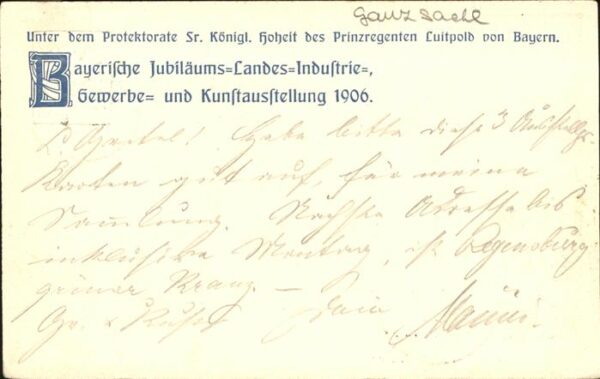 Ganzsache
Unter dem Protektorate Sr. Königl. Hoheit des Prinzregenten Luitpold von Bayern.
Bayerische Jubiläums=Landes=Industrie=,
Gewerbe= und Kunstausstellung 1906.
L. Gretel! Hebe bitte diese 3 Ausstellgs-
Karten gut auf, für meine
Sammlung. Nächste Adresse bis
inklusive Montag, ist Regensburg
grüner Kranz. —
Gr. & Kuss Dein